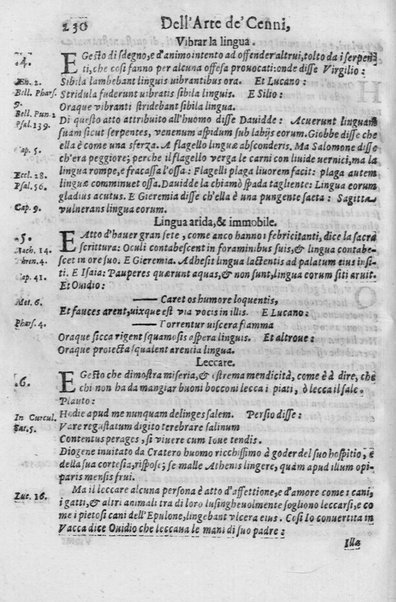 230 Dell'Arte de' Cenni,
Vibrar la lingua.
.4. E Gesto di sdegno, e d'animo intento ad offender altrui, tolto da i serpenti,
che così fanno per alcuna offesa prouocati: onde disse Virgilio:
Æn. 2. Sibila lambebant linguis vibrantibus ora. Et Lucano:
Bell. Phars. Stridula fuderunt uibratis sibila linguis. E Silio:
9.
Bell. Pun. 2 Oraque vibranti stridebant sibila lingua.
Psal. 139. Di questo atto attribuito all'huomo disse Dauidde: Acuerunt linguam
suam sicut serpentes, venenum aspidum sub labijs eorum. Giobbe disse che
Cap. 5. ella è come una sferza. A flagello linguæ absconderis. Ma Salomone disse
ch'era peggiore; perche il flagello verga le carni con liuide vernici, ma la
Eccl. 28. lingua rompe, e fracassa l'ossa: Flagelli plaga liuorem facit: plaga autem
Psal. 56. linguæ comminuet ossa. Dauidde la chiamò spada tagliente: Lingua eorum
gladius acutus. E Gieremia disse ch'ell'è una pungente saeta: Sagitta
Cap. 9. vulnerans lingua eorum.
Lingua arida, & immobile.
.5. E Atto d'hauer gran sete, come anco hanno i febricitanti, dice la sacra
Zach. 14. scrittura: Oculi contabescent in foraminibus suis, & lingua contabescet
Thren. 4. in ore suo. E Gieremia. Adhesit lingua lactentis ad palatum eius in siti.
Cap. 41. E Isaia: Pauperes quærunt aquas, & non sunt, lingua eorum siti aruit.
Et Ouidio:
Met. 6. —— Caret os humore loquentis,
Et fauces arent, uixque est via vocis in illis. E Lucano:
Phars. 4. —— Torrentur uiscera flamma
Oraque sicca rigent squamosis aspera linguis. Et altroue:
Oraque protecta squalent arentia lingua.
Leccare.
.6. E Gesto che dimostra miseria, & estrema mendicità, come è à dire, che
chi non ha da mangiar buoni bocconi lecca i piati, ò lecca il sale.
Plauto:
In Curcul. Hodie apud me nunquam delinges salem. Persio disse:
Sat. 5. Vare regustatum digito terebrare salinum
Contentus perages, si viuere cum Ioue tendis.
Diogene inuitato da Cratero huomo ricchissimo à goder del suo hospitio, e
della sua cortesia, rispose; se malle Athenis lingere, quàm apud illum opiparis
mensis frui.
Luc. 16. Ma il leccare alcuna persona è atto d'affettione, e d'amore come i cani,
i gatti, & altri animali tra di loro lusingheuolmente sogliono leccarsi, e come
i pietosi cani dell'Epulone, lingebant vlcera eius. Così Io conuertita in
Vacca dice Ouidio che leccaua le mani di suo padre:
Illa